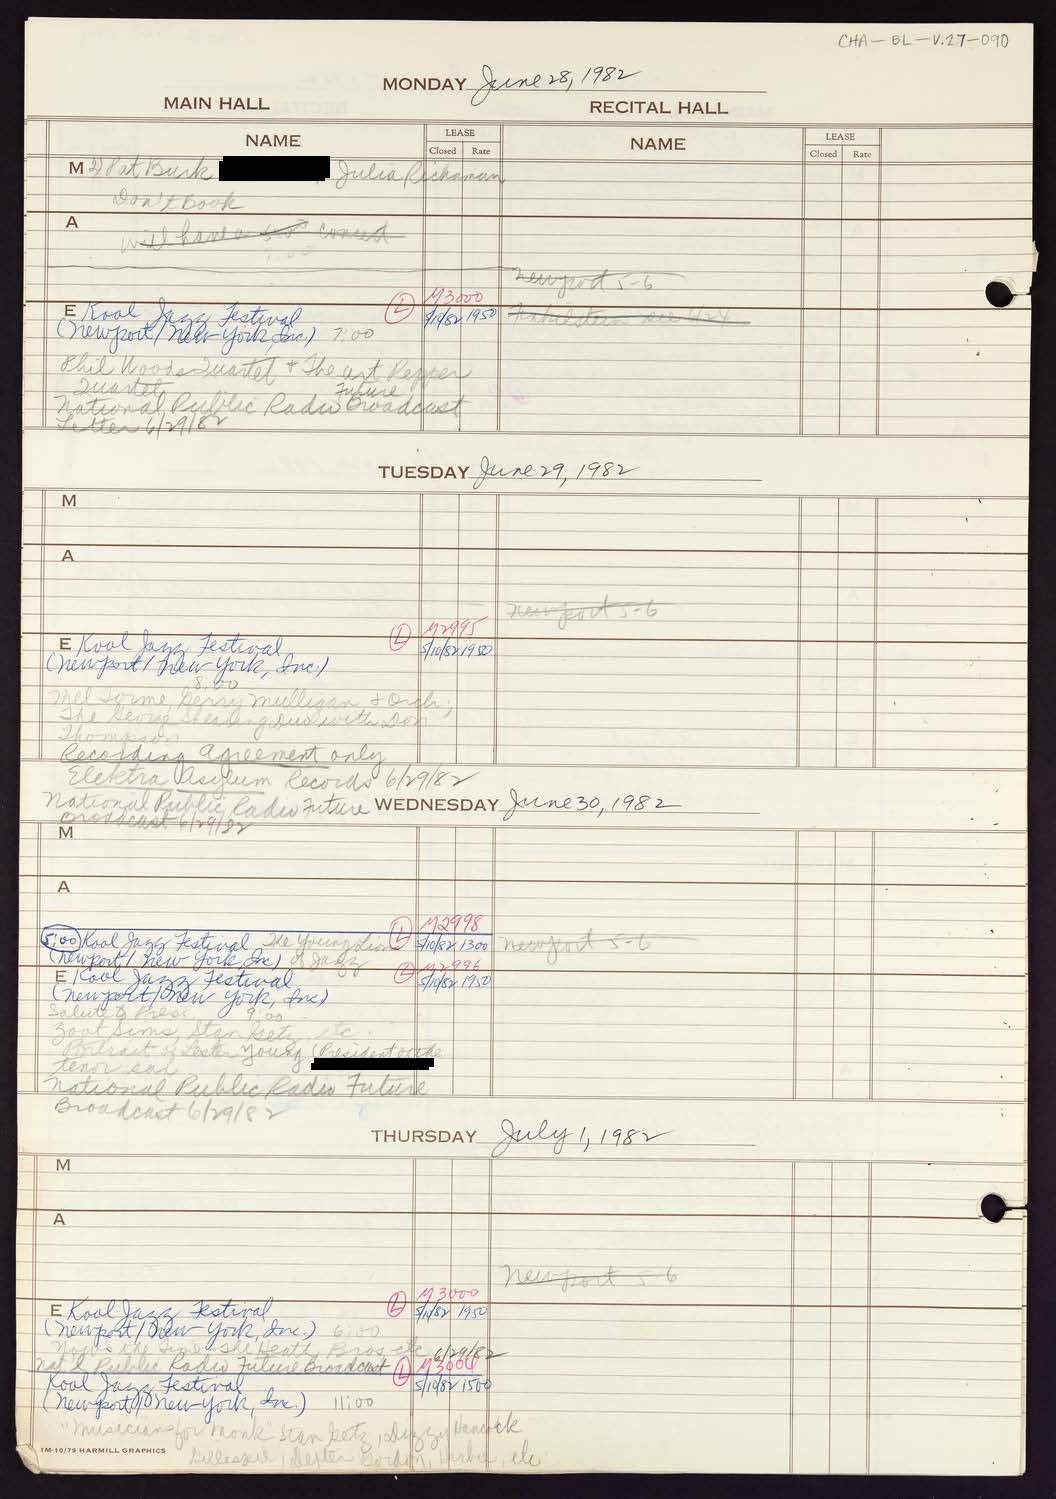 CHA-BL-V.27-090
MONDAY June 28, 1982
MAIN HALL RECITAL HALL
NAME LEASE NAME LEASE
Closed Rate Closed Rate
M Pat Burk Julia Richman
Don't Book
A
will have a concert
Newport 5-6
E Kool Jazz Festival L M3000
(Newport/New York, Inc.) 7:00 5/10/82 1950
Phil Woods Quartet + The Art Pepper
Quartet Future
National Public Radio Broadcast
Letter 6/29/82
TUESDAY June 29, 1982
M
A
Newport 5-6
E Kool Jazz Festival L M2995
(Newport/New York, Inc.) 5/10/82 1950
8:00
Mel Torme, Gerry Mulligan + Orch;
The George Shearing Duo with Don
Thompson
Recording Agreement only
Elektra Asylum Records 6/29/82
National Public Radio Future
Broadcast 6/29/82
WEDNESDAY June 30, 1982
M
A
M2998
5:00 Kool Jazz Festival The Young Lions L 5/10/82 1300 Newport 5-6
(Newport/New York, Inc) of Jazz
E Kool Jazz Festival L M2996
(Newport/New York, Inc) 5/10/82 1950
Salute to Pres 9:00
Zoot Sims, Stan Getz, etc.
Portrait of Lester Young (President of the
tenor sax
National Public Radio Future
Broadcast 6/29/82
THURSDAY July 1, 1982
M
A
Newport 5-6
M3000
E Kool Jazz Festival L 5/11/82 1950
(Newport/New York, Inc.) 6:00
Now's the Time Heath Bros etc 6/29/82
Nat'l Public Radio Future Broadcast L M3004
Kool Jazz Festival 5/10/82 1500
(Newport/New York, Inc.) 11:00
"Musicians for Monk Stan Getz, Dizzy Hancock
Gillespie, Dexter Gordon, Herbie, etc
1M-10/79 HARMILL GRAPHICS